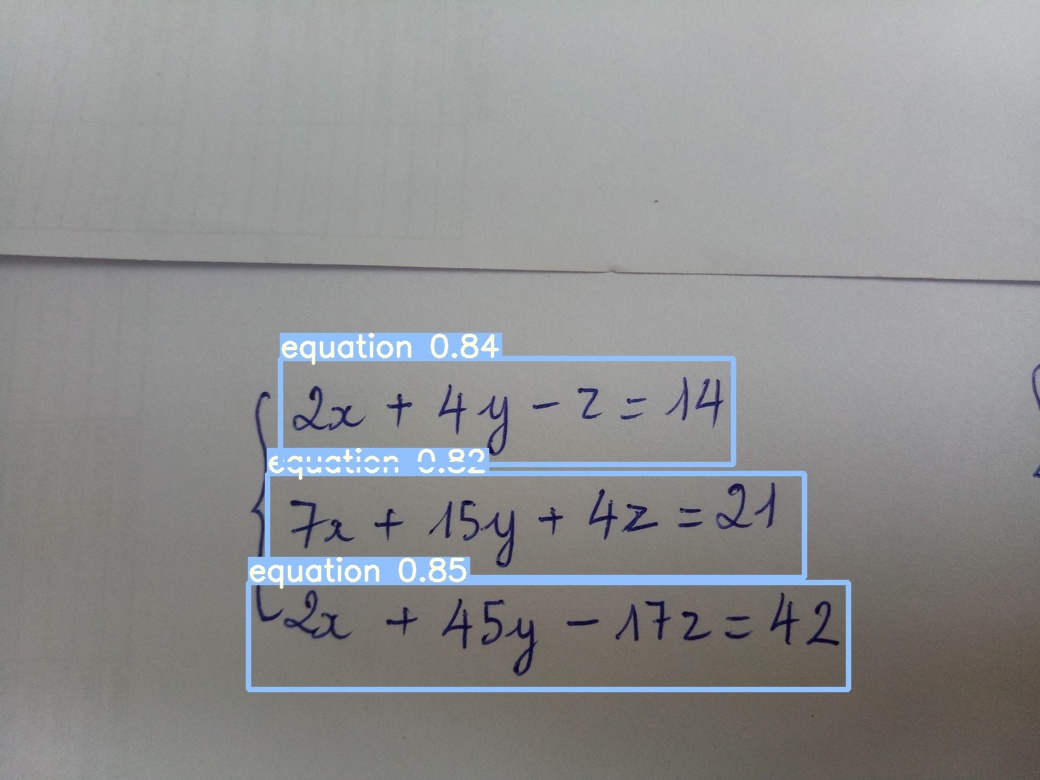 equation 0.84
2x + 4y - z = 14
equation 0.82
7x + 15y + 4z = 21
equation 0.85
2x + 45y - 17z = 42